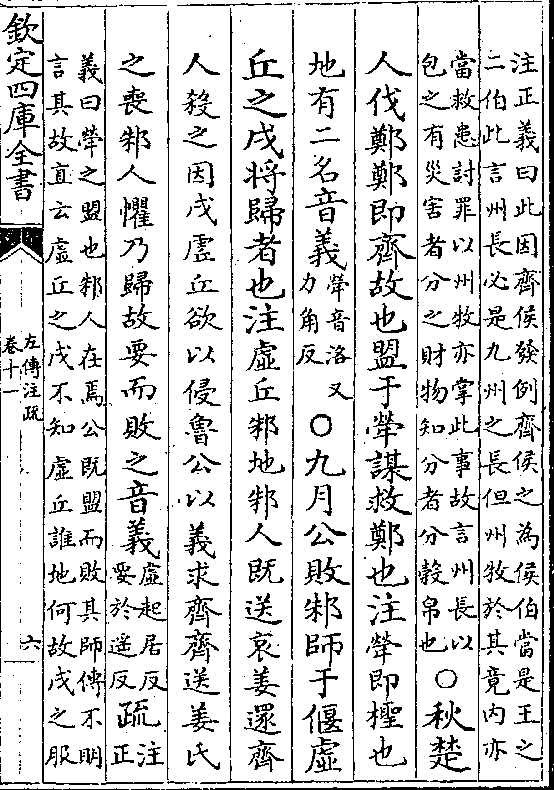 注正義曰此因齊侯發例齊侯之為侯伯當是王之
二伯此言州長必是九州之長但州牧於其竟内亦
當救患討罪以州牧亦掌此事故言州長以
包之有災害者分之財物知分者分穀帛也
〇秋楚
人伐鄭鄭即齊故也盟于犖謀救鄭也注犖即檉也
地有二名音義犖音洛又
力角反
〇九月公敗邾師于偃虚
丘之戍將歸者也注虚丘邾地邾人既送哀姜還齊
人殺之因戍虚丘欲以侵魯公以義求齊齊送姜氏
之喪邾人懼乃歸故要而敗之音義虚起居反
要於遥反
疏注
正
義曰犖之盟也邾人在焉公既盟而敗其師傳不明
言其故直云虚丘之戍不知虚丘誰地何故戍之服
欽定四庫全書
左傳注疏
卷十一
六